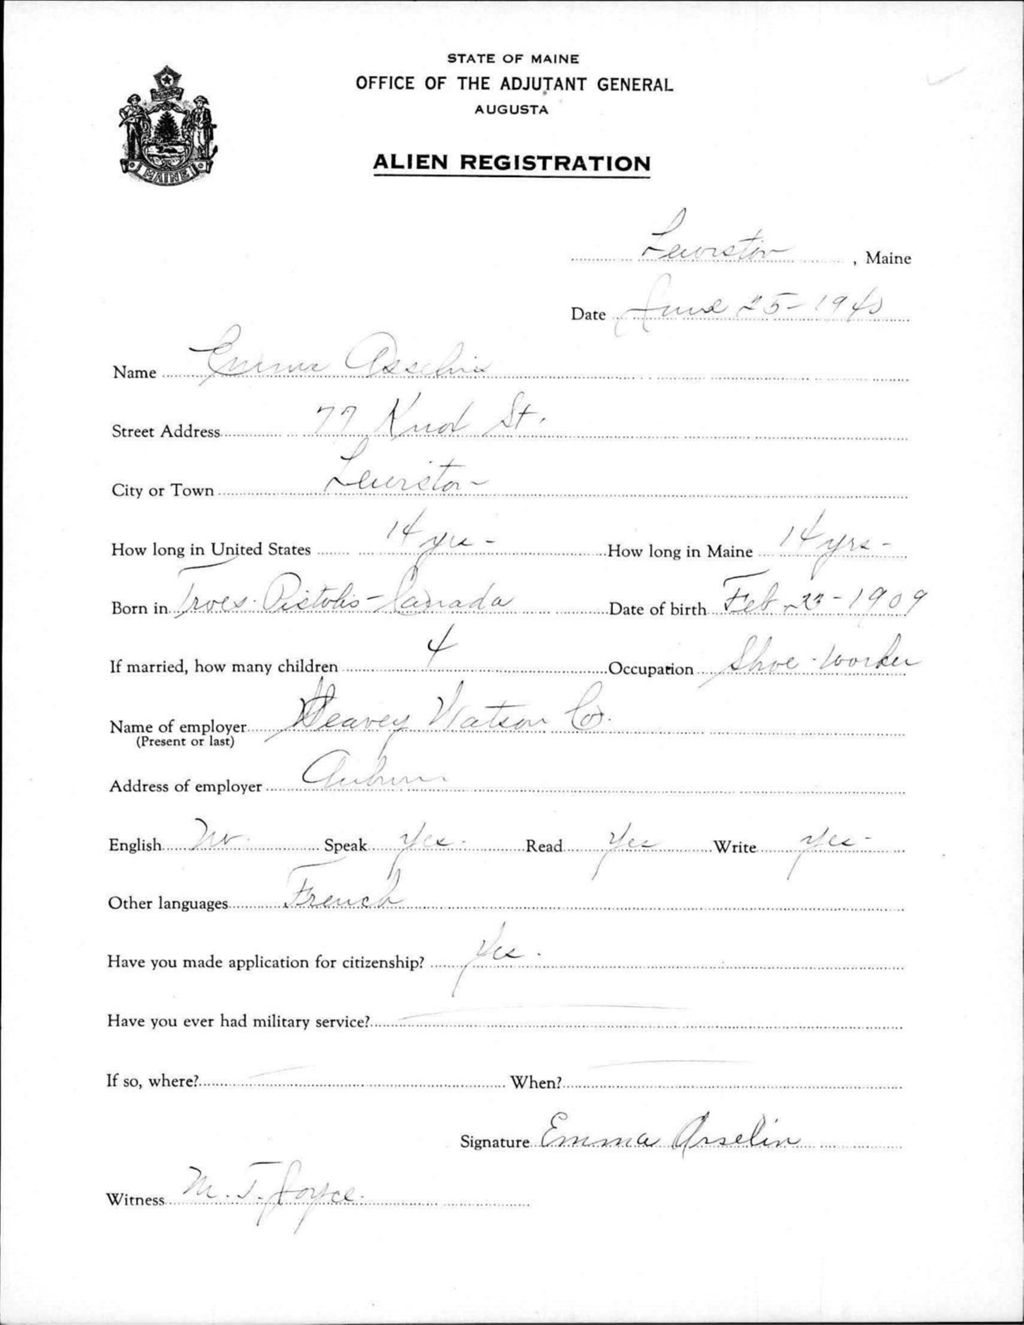 STATE OF MAINE
OFFICE OF THE ADJUTANT GENERAL
AUGUSTA
ALIEN REGISTRATION
MAINE
Lewiston, Maine
Date June 25-1940
Name Emma Asselin
Street Address 77 Knox St.
City or Town Lewiston
How long in United States 14 yrs - How long in Maine 14 yrs -
Born in Troes-Pistolis-Canada Date of birth Feb-23-1909
If married, how many children 4 Occupation Shoe-worker
Name of employer Watson Co.
(Present or last)
Address of employer Auburn
English No. Speak Yes. Read Yes Write Yes-
Other languages French
Have you made application for citizenship? Yes.
Have you ever had military service?
If so, where? When?
Signature Emma Asselin
Witness M. T. Joyce.